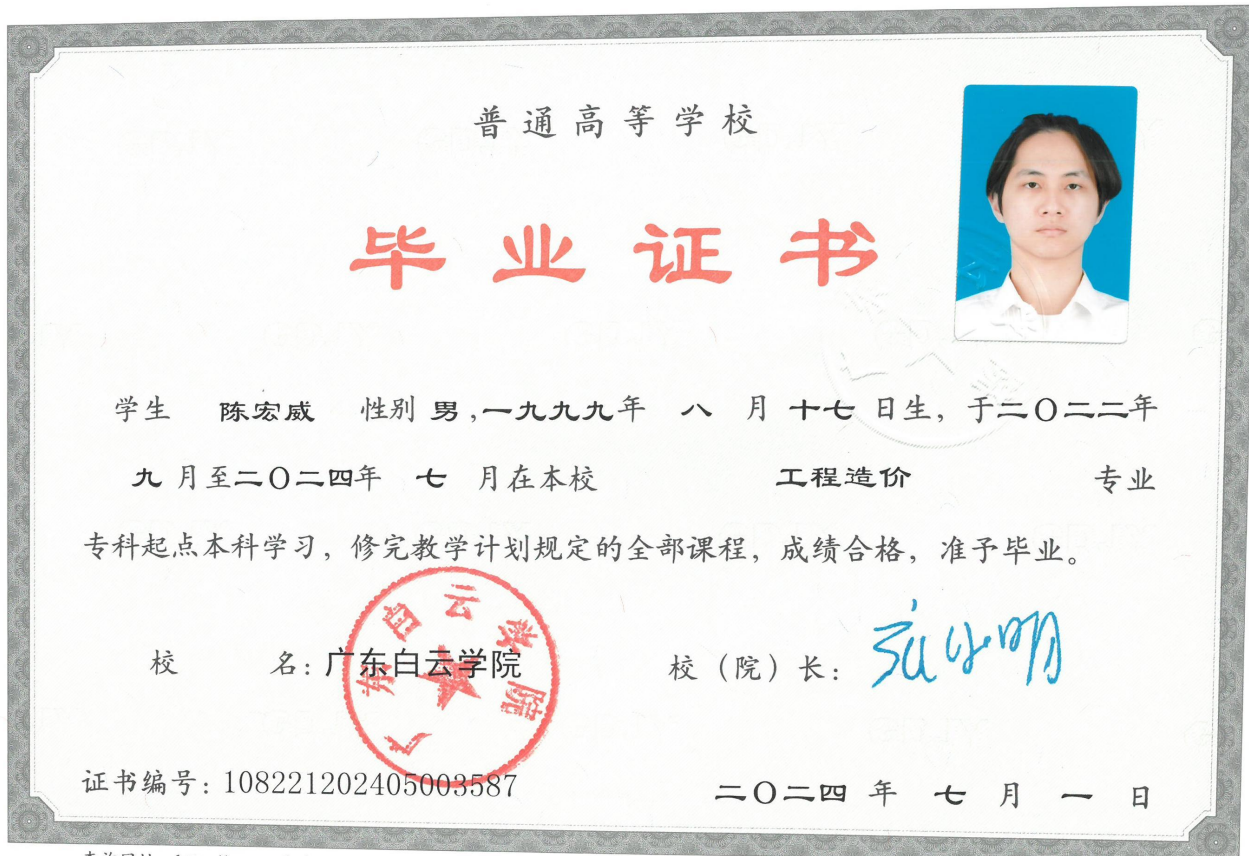 普通高等学校
毕业证书
学生 陈宏威 性别 男,一九九九年 八 月 十七 日生，于二〇二二年
九 月至二〇二四年 七 月在本校 工程造价 专业
专科起点本科学习，修完教学计划规定的全部课程，成绩合格，准予毕业。
校 名：广东白云学院 校（院）长：
广东白云学院
证书编号：108221202405003587 二〇二四 年 七 月 一 日